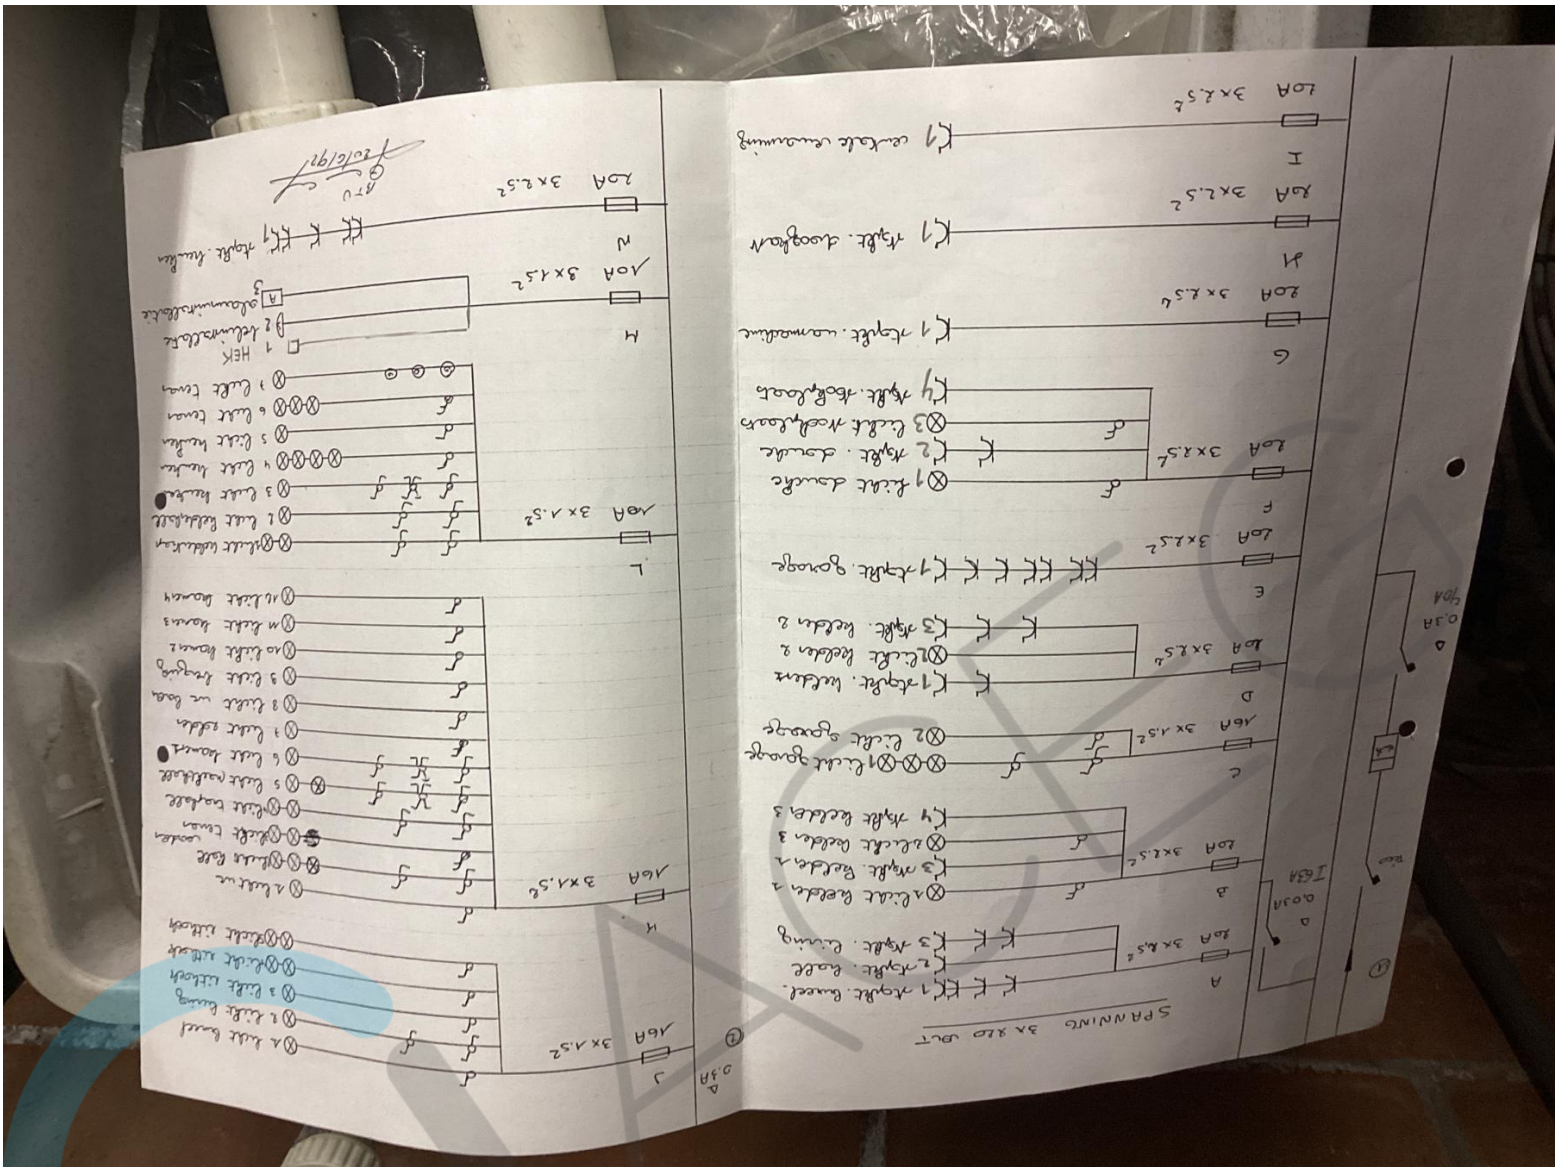 1
SPANNING 3x220 VOLT
A
20A 3x2,5²
1 stpkt. bureel.
2 stpkt. hall
3 stpkt. living
Δ
0,03A
I63A
B
20A 3x2,5²
1 licht kelder 1
3 stpkt. kelder 1
2 licht kelder 3
4 stpkt kelder 3
C
16A 3x1.5²
1 licht garage
2 licht garage
D
20A 3x2.5²
1 stpkt. kelder 1
2 licht kelder 2
3 stpkt. kelder 2
Δ
0,3A
40A
E
20A 3x2.5²
1 stpkt. garage
F
20A 3x2.5²
1 licht douche
2 stpkt. douche
3 licht stookplaats
4 stpkt. stookplaats
G
20A 3x2.5²
1 stpkt. wasmachine
H
20A 3x2.5²
1 stpkt. droogkast
I
20A 3x2.5²
1 centrale verwarming
2
Δ
0.3A
J
16A 3x1.5²
1 licht bureel
2 licht living
3 licht zithoek
licht zithoek
licht zithoek
K
16A 3x1.5²
1 licht wc
licht hall
licht terras
voordeur
licht traphall
5 licht nachthall
6 licht kamer 1
7 licht zolder
8 licht wc badk
9 licht berging
10 licht kamer 2
11 licht kamer 3
12 licht kamer 4
L
10A 3x1.5²
2 licht kelderhall
3 licht keuken
4 licht keuken
5 licht keuken
6 licht terras
7 licht terras
M
10A 3x1.5²
1 HEK
2 belinstallatie
3 alarminstallatie
A
N
20A 3x2.5²
1 stpkt. keuken